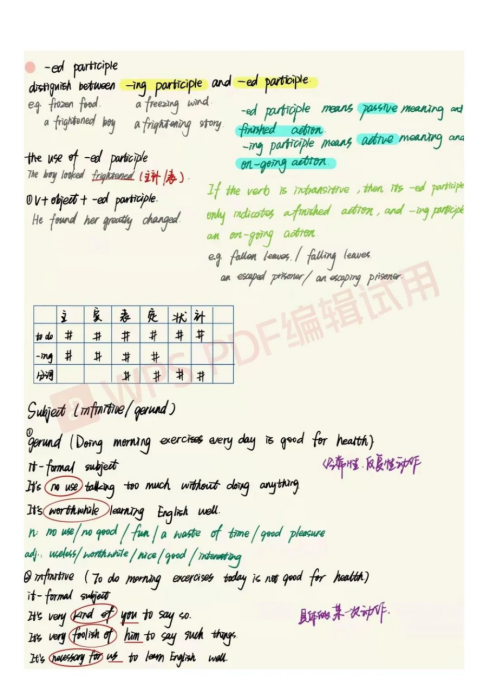 -ed participle
distinguish between -ing participle and -ed participle.
e.g frozen food. a freezing wind.
a frightened boy a frightening story
-ed participle means passive meaning and
finished action.
-ing participle means active meaning and
on-going action.
the use of -ed participle
The boy looked frightened (主补/表).
①V+object+ -ed participle.
He found her greatly changed
If the verb is intransitive, then its -ed participle
only indicates a finished action, and -ing participle
an on-going action.
e.g fallen leaves. / falling leaves
an escaped prisoner / an escaping prisoner.
主 宾 表 定 状 补
to do # # # # # #
-ing # # # #
分词 # # # #
Subject (infinitive/gerund)
①
gerund (Doing morning exercises every day is good for health)
it-formal subject
经常性.反复性动作
It's no use talking too much without doing anything
It's worthwhile learning English well.
n: no use/no good / fun / a waste of time / good pleasure
adj: useless/worthwhile/nice/good/interesting
② infinitive (To do morning exercises today is not good for health)
it-formal subject
It's very kind of you to say so.
具体的某一次动作.
It's very foolish of him to say such things.
It's necessary for us to learn English well.
WPS PDF编辑试用